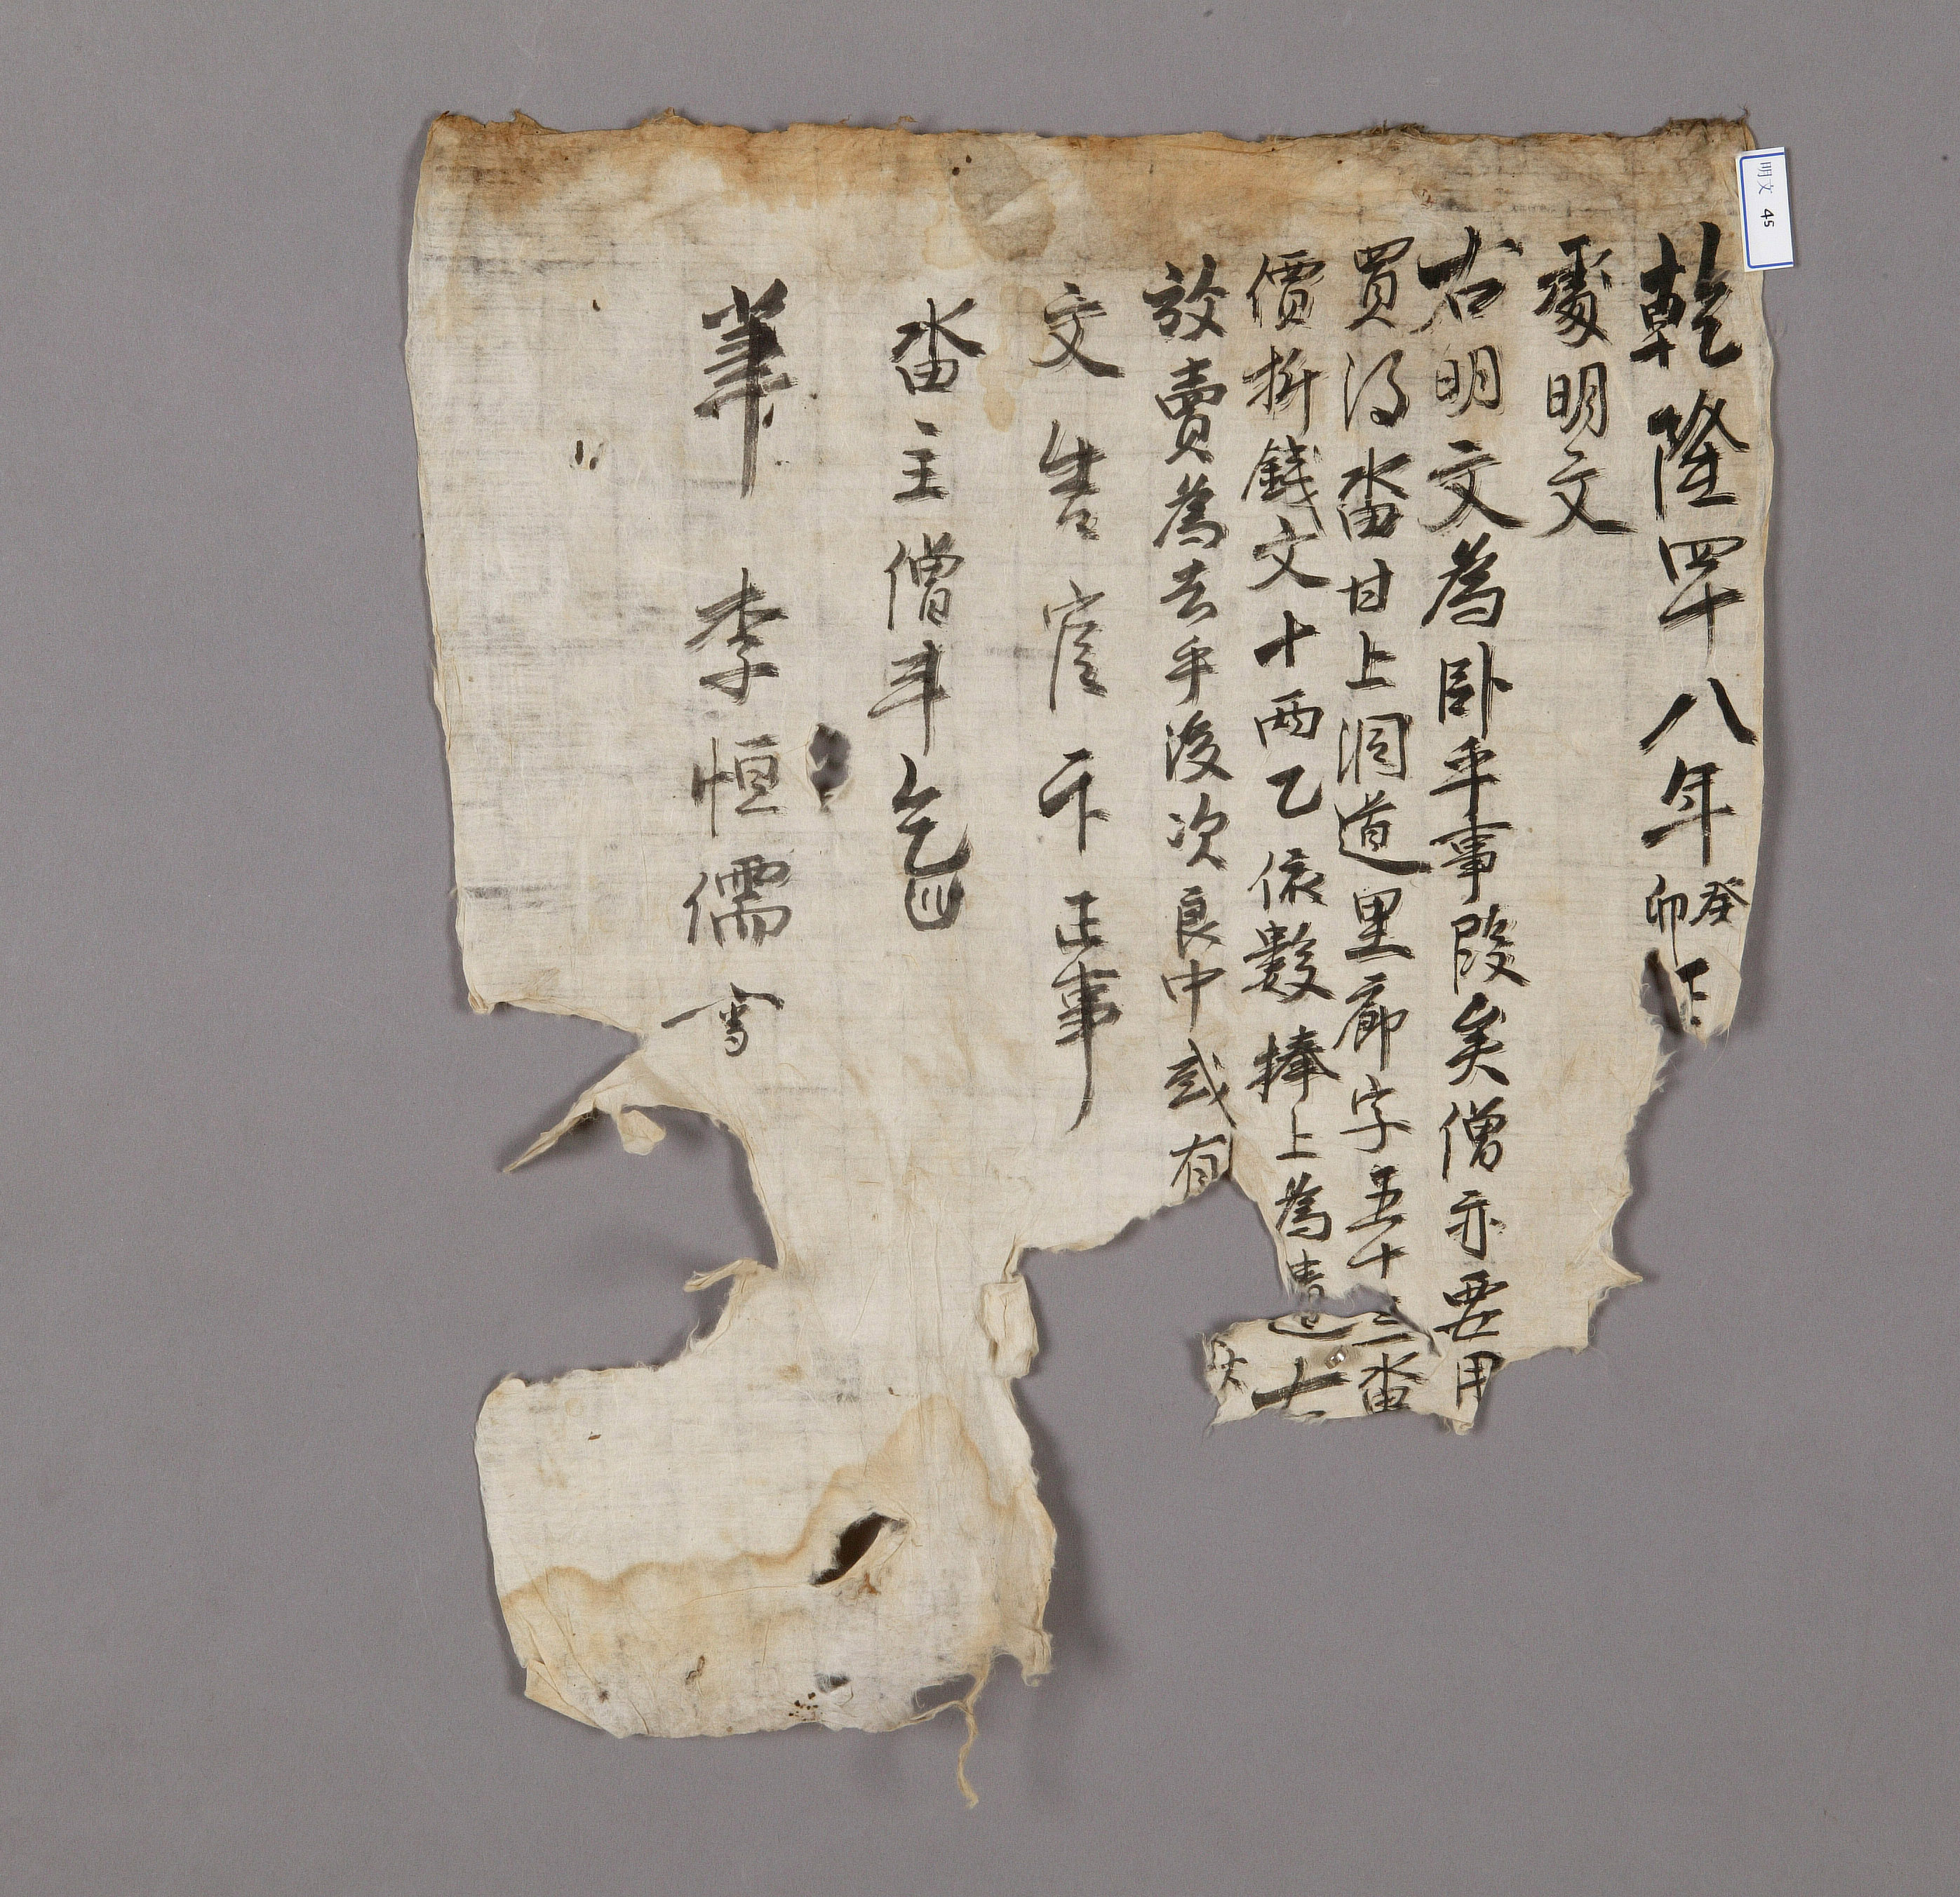 乾隆四十八年癸卯正
處明文
右明文爲卧乎事段矣僧亦要用
買得畓甘上洞道里廊字五十三畓
價折錢文十兩乙依數捧上爲
放賣爲去乎後次良中或有
文告官卞正事
畓主僧斗
筆 李恒儒
明文 45